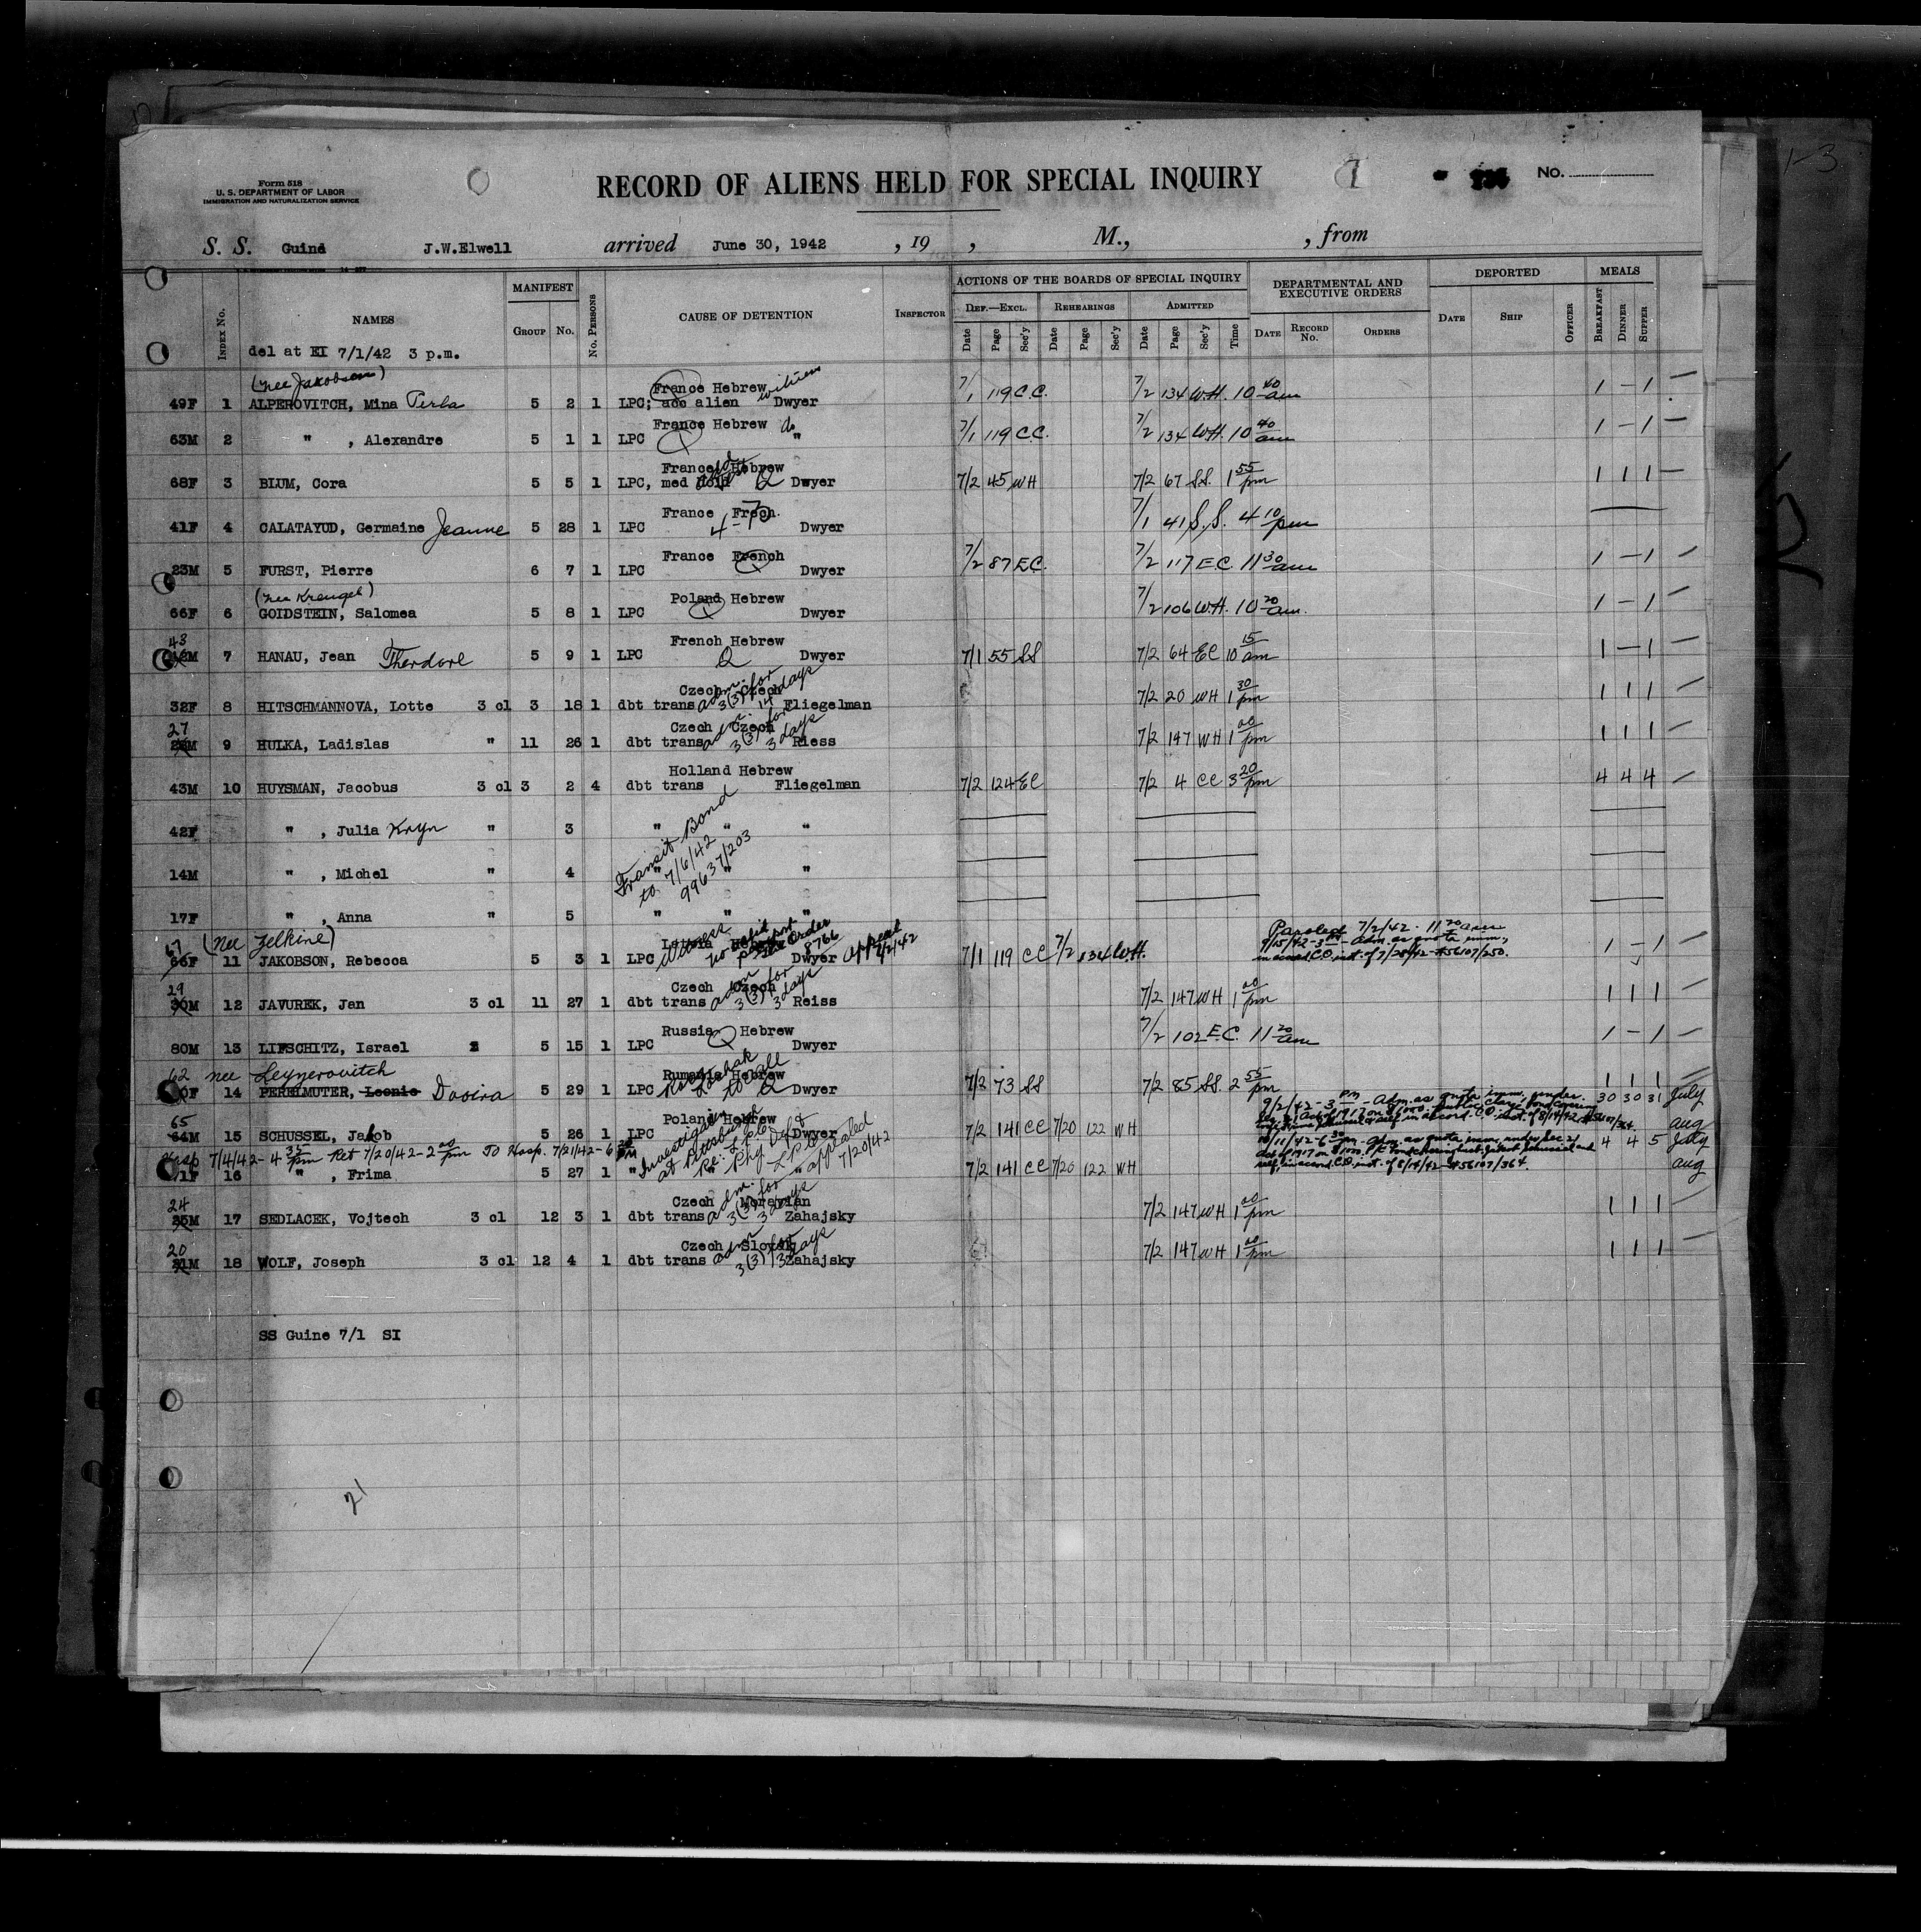 Form 518
U. S. DEPARTMENT OF LABOR
IMMIGRATION AND NATURALIZATION SERVICE
RECORD OF ALIENS HELD FOR SPECIAL INQUIRY
7
No.
1-3
S. S. Guine J.W.Elwell arrived June 30, 1942 , 19 , M., , from
INDEX No. NAMES MANIFEST GROUP No. No. PERSONS CAUSE OF DETENTION INSPECTOR
ACTIONS OF THE BOARDS OF SPECIAL INQUIRY
DEF.—EXCL. REHEARINGS ADMITTED
Date Page Sec'y Date Page Sec'y Date Page Sec'y Time
DEPARTMENTAL AND EXECUTIVE ORDERS
DATE RECORD No. ORDERS
DEPORTED
DATE SHIP OFFICER
MEALS
BREAKFAST DINNER SUPPER
del at EI 7/1/42 3 p.m.
(nee Jakobson) France Hebrew witness
49F 1 ALPEROVITCH, Mina Perla 5 2 1 LPC; acc alien Dwyer 7/1 119 CC. 7/2 134 W.H. 10 40 am 1 – 1
France Hebrew do
63M 2 " , Alexandre 5 1 1 LPC " 7/1 119 C.C. 7/2 134 W.H. 10 40 am 1 – 1
France Hebrew
68F 3 BLUM, Cora 5 5 1 LPC, med hold Dwyer 7/2 45 WH 7/2 67 SS. 1 55 pm 1 1 1
France Frech.
41F 4 CALATAYUD, Germaine Jeanne 5 28 1 LPC 4-70 Dwyer 7/1 41 S.S. 4 10 pm
France French
23M 5 FURST, Pierre 6 7 1 LPC Dwyer 7/2 87 EC. 7/2 117 E.C. 11 30 am 1 – 1
(nee Krengel) Poland Hebrew
66F 6 GOLDSTEIN, Salomea 5 8 1 LPC Dwyer 7/2 106 W.H. 10 20 am. 1 – 1
43 French Hebrew
7 HANAU, Jean Theodore 5 9 1 LPC Q Dwyer 7/1 55 SS 7/2 64 EC 10 15 am 1 – 1
Czech Czech adm. 3(3) for 14 days
32F 8 HITSCHMANNOVA, Lotte 3 cl 3 18 1 dbt trans Fliegelman 7/2 20 WH 1 30 pm 1 1 1
27 Czech Czech adm. 3(3) for 3 days
9 HULKA, Ladislas " 11 26 1 dbt trans Riess 7/2 147 WH 1 00 pm 1 1 1
Holland Hebrew
43M 10 HUYSMAN, Jacobus 3 cl 3 2 4 dbt trans Fliegelman 7/2 124 EC 7/2 4 CC 3 20 pm 4 4 4
42F " , Julia Kryn " 3 " " "
Transit Bond
to 7/6/42
99637/203
14M " , Michel " 4 " " "
17F " , Anna " 5 " " "
67 (nee Zelkine) Latvia Hebrew witness
66F 11 JAKOBSON, Rebecca 5 3 1 LPC Dwyer 8766 Appeal 7/2/42 7/1 119 CC 7/2 134 W.H. 1 – 1
Paroled 7/2/42 - 11 20 am
9/15/42 - 3 pm - adm. as quota imm.,
in accord. C.O. inst. of 7/28/42 - #56107/250.
29 Czech Czech adm 3(3) for 3 days
30M 12 JAVUREK, Jan 3 cl 11 27 1 dbt trans Reiss 7/2 147 WH 1 00 pm 1 1 1
Russia Hebrew
80M 13 LIFSCHITZ, Israel 5 15 1 LPC Dwyer 7/2 102 E.C. 11 20 am 1 – 1
62 nee Leyzerovitch Rumania Hebrew
14 PERELMUTER, Leonie Dvoira 5 29 1 LPC to call Q Dwyer 7/2 73 SS 7/2 85 SS. 2 55 pm 1 1 1
65 Poland Hebrew 30 30 31 July
64M 15 SCHUSSEL, Jakob 5 26 1 LPC Dwyer 7/2 141 CC 7/20 122 WH Aug
9/2/42 - 3 pm - adm. as quota imm., under
Sec. 21 Act of 1917 on $1000. public charge bond covering
self in accord. C.O. inst. of 8/14/42 - #56107/364.
Hosp 7/4/42 - 4 35 pm Ret 7/20/42 - 2 00 pm To Hosp. 7/21/42 - 6 PM
Investigation at Pittsburgh Re: L.P.C. Phy. Def. &
LPC appealed 7/20/42
71F 16 " , Frima 5 27 1 " " 7/2 141 CC 7/20 122 WH 4 4 5 July
Aug
10/11/42 - 6 30 pm - adm. as quota imm., under Sec 21
Act of 1917 on $1000 P/C bond covering husb. Jakob Schussel and
self, in accord. C.O. inst. of 8/14/42 - #56107/364.
24 Czech Moravian adm. 3(3) for 3 days
25M 17 SEDLACEK, Vojtech 3 cl 12 3 1 dbt trans Zahajsky 7/2 147 WH 1 00 pm 1 1 1
20 Czech Slovak adm 3(3) for 3 days
21M 18 WOLF, Joseph 3 cl 12 4 1 dbt trans Zahajsky 7/2 147 WH 1 00 pm 1 1 1
SS Guine 7/1 SI
21